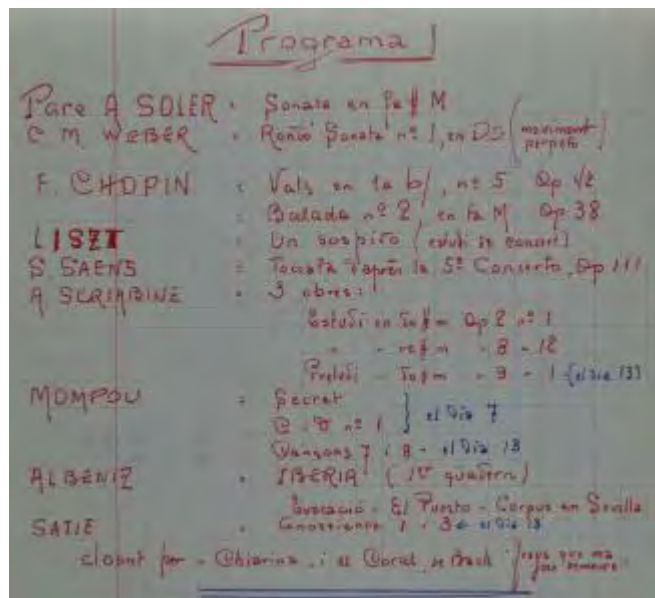 Programa
Pare A SOLER · Sonata en fa # M
C M WEBER · Rondó Sonata nº 1, en DO (moviment perpetu
F. CHOPIN : Vals en la b/, nº 5 Op 42
: Balada nº 2, en fa M Op 38
LISZT : Un sospiro (estudi de concert)
S SAENS = Tocata d'après le 5º Concerto, Op 111
A SCRIABINE · 3 obres:
Estudi en Do # m Op 2 nº 1
" - re # m - 8 - 12
Preludi - Do # m - 9 - 1 - (el dia 13)
MOMPOU = Secret
C i D nº 1 } el Dia 7
Cansons 7 i 8 - el Dia 13
ALBENIZ · IBERIA (1er quadern)
Evocació - El Puerto - Corpus en Sevilla
SATIE · Gnossienne 1 - 3 el Dia 13
cloent per - Chiarina i el Coral de Bach que ma